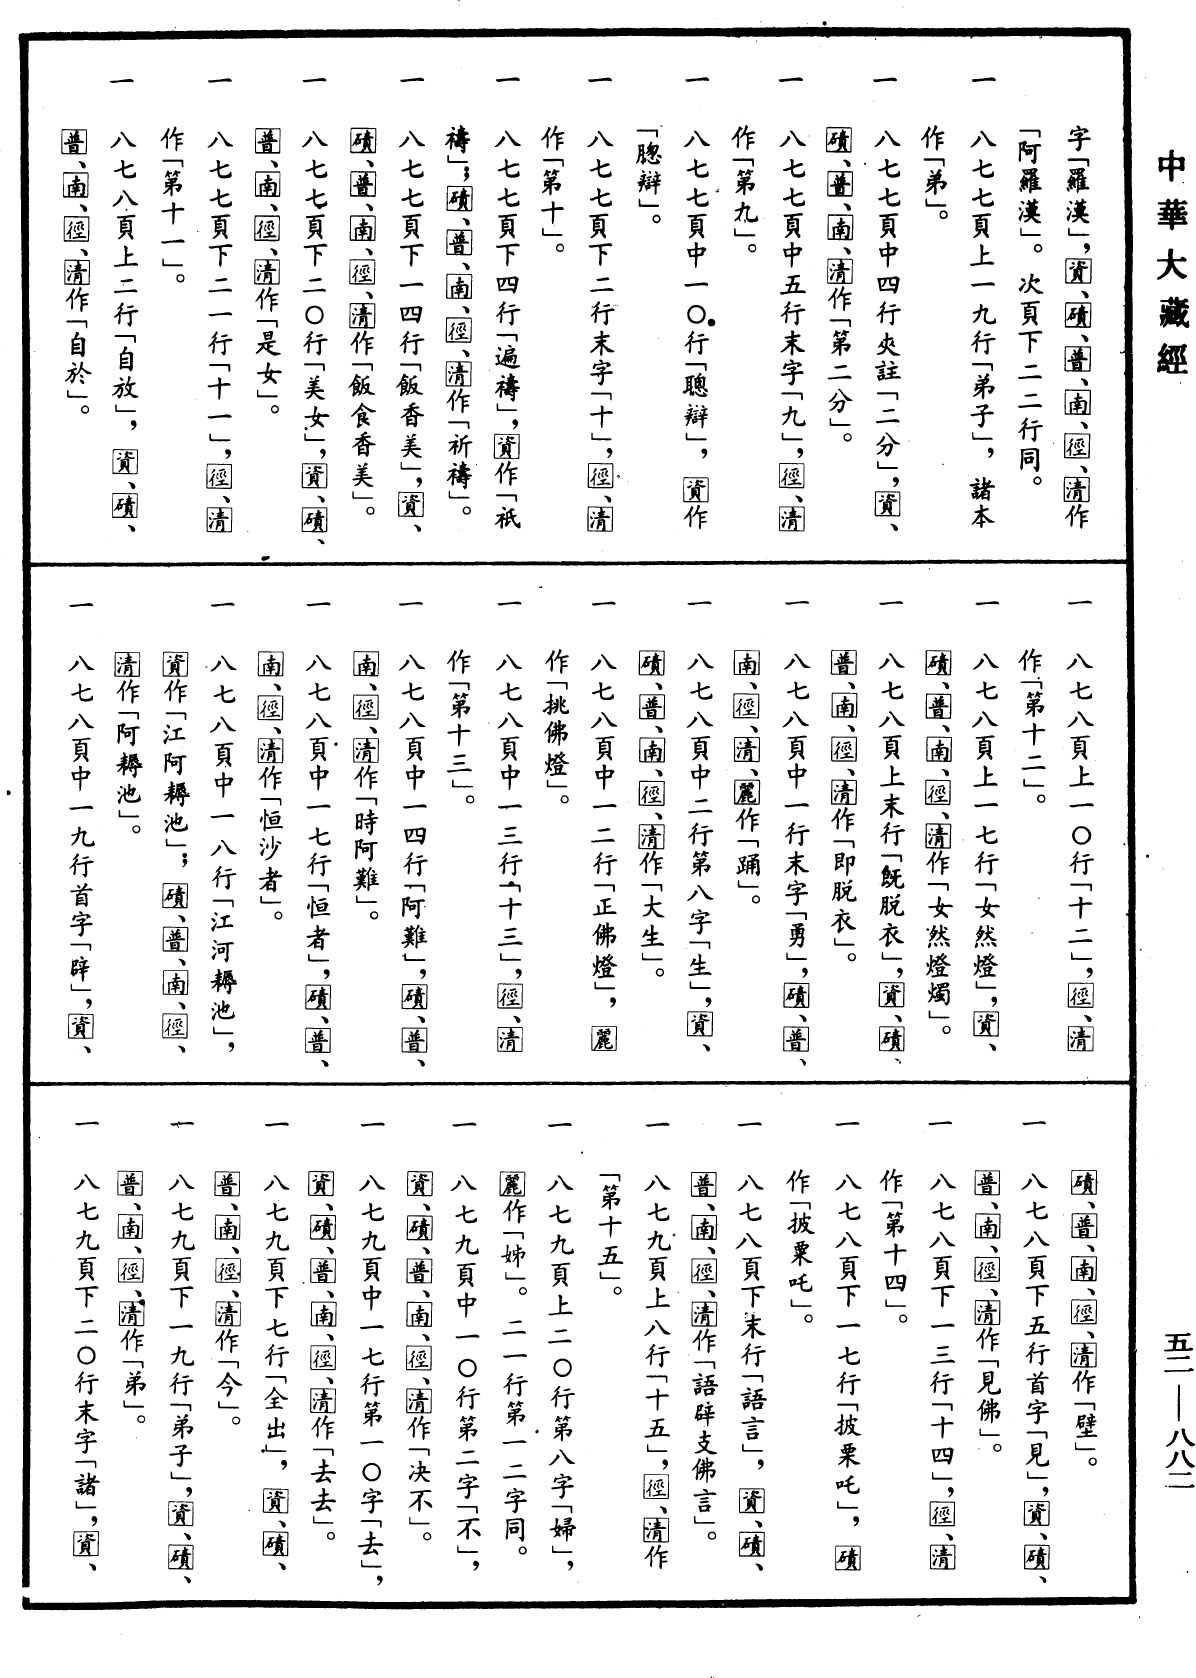 中華大藏經
字「羅漢」，資、磧、普、南、徑、清作
「阿羅漢」。次頁下二二行同。
一 八七七頁上一九行「弟子」，諸本
作「弟」。
一 八七七頁中四行夾註「二分」，資、
磧、普、南、清作「第二分」。
一 八七七頁中五行末字「九」，徑、清
作「第九」。
一 八七七頁中一〇行「聰辯」，資作
「聦辯」。
一 八七七頁下二行末字「十」，徑、清
作「第十」。
一 八七七頁下四行「遍禱」，資作「祇
禱」；磧、普、南、徑、清作「祈禱」。
一 八七七頁下一四行「飯香美」，資、
磧、普、南、徑、清作「飯食香美」。
一 八七七頁下二〇行「美女」，資、磧、
普、南、徑、清作「是女」。
一 八七七頁下二一行「十一」，徑、清
作「第十一」。
一 八七八頁上二行「自放」，資、磧、
普、南、徑、清作「自於」。
一 八七八頁上一〇行「十二」，徑、清
作「第十二」。
一 八七八頁上一七行「女然燈」，資、
磧、普、南、徑、清作「女然燈燭」。
一 八七八頁上末行「既脱衣」，資、磧、
普、南、徑、清作「即脱衣」。
一 八七八頁中一行末字「勇」，磧、普、
南、徑、清、麗作「踊」。
一 八七八頁中二行第八字「生」，資、
磧、普、南、徑、清作「大生」。
一 八七八頁中一二行「正佛燈」，麗
作「挑佛燈」。
一 八七八頁中一三行「十三」，徑、清
作「第十三」。
一 八七八頁中一四行「阿難」，磧、普、
南、徑、清作「時阿難」。
一 八七八頁中一七行「恒者」，磧、普、
南、徑、清作「恒沙者」。
一 八七八頁中一八行「江河耨池」，
資作「江阿耨池」；磧、普、南、徑、
清作「阿耨池」。
一 八七八頁中一九行首字「辟」，資、
磧、普、南、徑、清作「壁」。
一 八七八頁下五行首字「見」，資、磧、
普、南、徑、清作「見佛」。
一 八七八頁下一三行「十四」，徑、清
作「第十四」。
一 八七八頁下一七行「披栗吒」，磧
作「披粟吒」。
一 八七八頁下末行「語言」，資、磧、
普、南、徑、清作「語辟支佛言」。
一 八七九頁上八行「十五」，徑、清作
「第十五」。
一 八七九頁上二〇行第八字「婦」，
麗作「姊」。二一行第一二字同。
一 八七九頁中一〇行第二字「不」，
資、磧、普、南、徑、清作「決不」。
一 八七九頁中一七行第一〇字「去」，
資、磧、普、南、徑、清作「去去」。
一 八七九頁下七行「全出」，資、磧、
普、南、徑、清作「今」。
一 八七九頁下一九行「弟子」，資、磧、
普、南、徑、清作「弟」。
一 八七九頁下二〇行末字「諸」，資、
五二——八八二